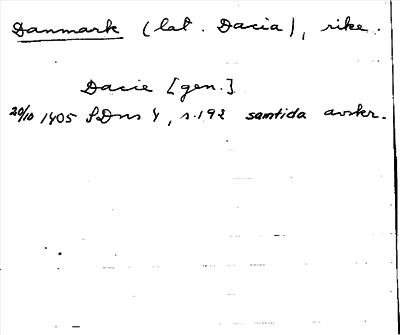 Danmark (lat. Dacia), rike.
Dacie [gen.]
20/10 1405 SDns 4, s.192 samtida avskr.